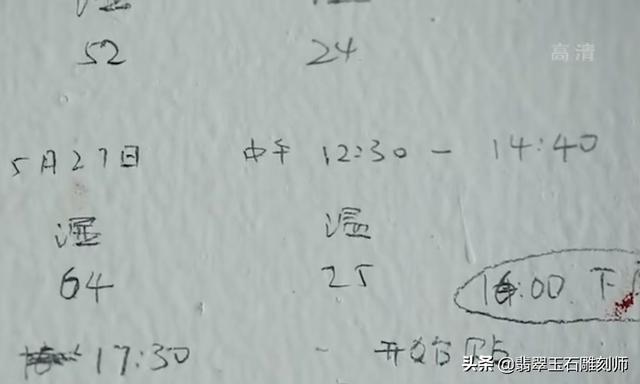 湿 温
52 24
高清
5月27日 中午 12:30 — 14:40
湿 温
64 25
16:00 下
17:30 - 开始贴
头条 @翡翠玉石雕刻师